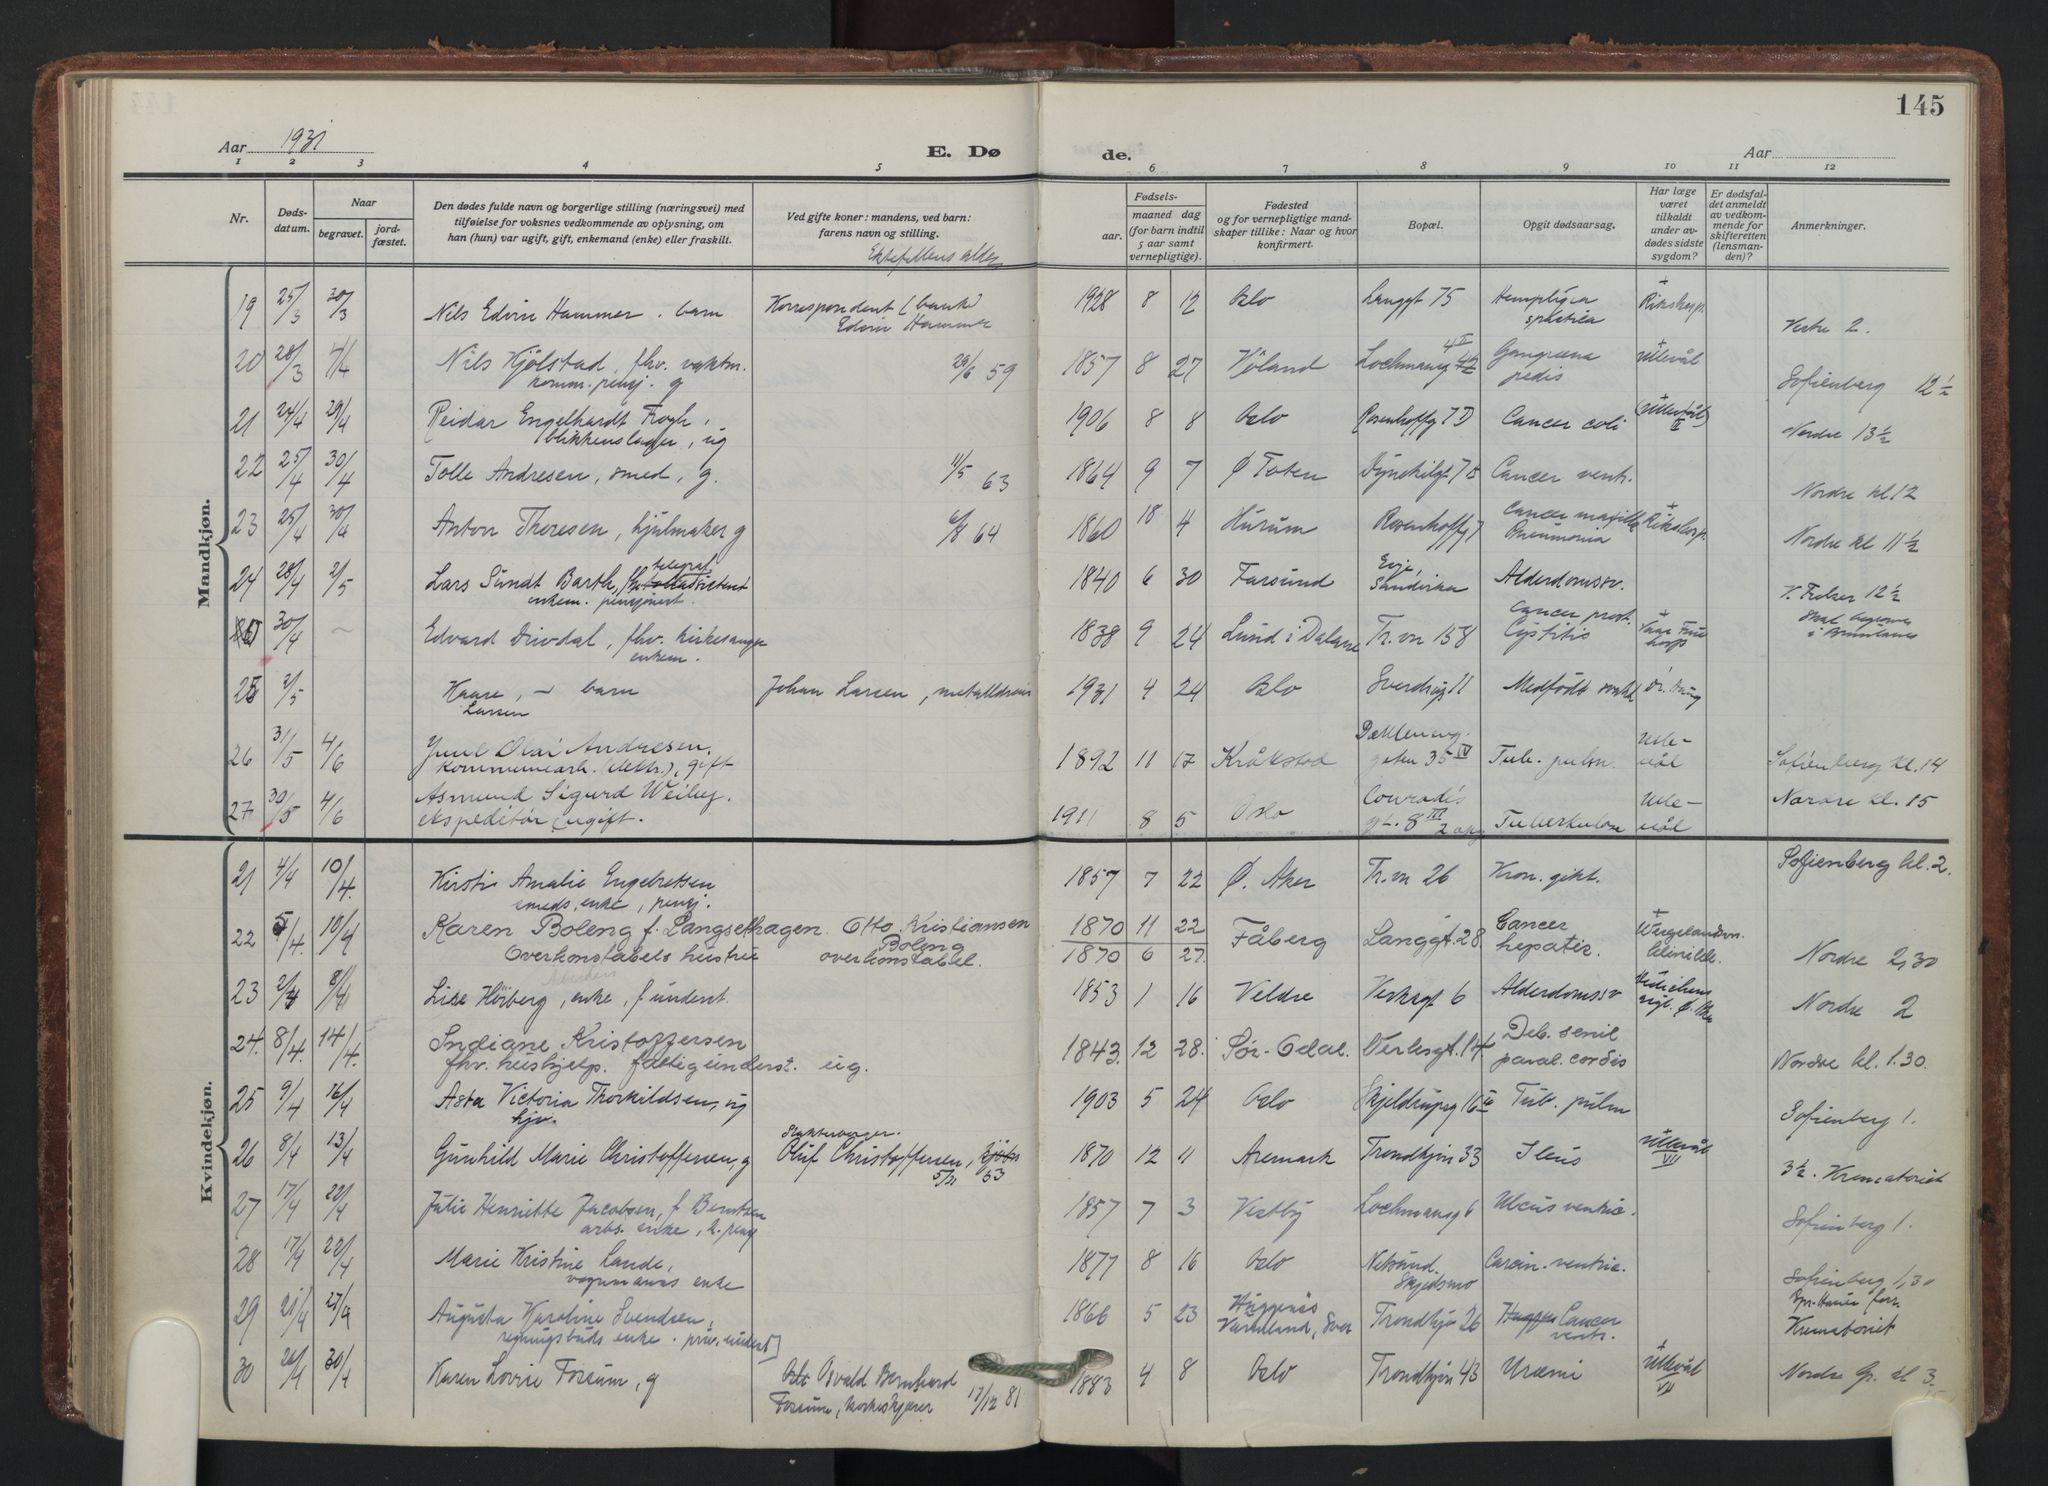 145
Aar 1931
E. Dø
de.
Aar
1 2 3 4 5 6 7 8 9 10 11 12
Nr.
Døds-
datum.
Naar
begravet.
jord-
fæstet.
Den dødes fulde navn og borgerlige stilling (næringsvei) med
tilføielse for voksnes vedkommende av oplysning, om
han (hun) var ugift, gift, enkemand (enke) eller fraskilt.
Ved gifte koner: mandens, ved barn:
farens navn og stilling.
Ektefellens alder
Fødsels-
aar.
maaned dag
(for barn indtil
5 aar samt
vernepligtige).
Fødested
og for vernepligtige mand-
skaper tillike: Naar og hvor
konfirmert.
Bopæl.
Opgit dødsaarsag.
Har læge
været
tilkaldt
under av-
dødes sidste
sygdom?
Er dødsfal-
det anmeldt
av vedkom-
mende for
skifteretten
(lensman-
den)?
Anmerkninger.
Mandkjøn.
19 25/3 30/3 Nils Edvin Hammer. barn Korrespondent (bank) 1928 8 12 Oslo Langgt 75
Edvin Hammer
Vestre 2.
20 28/3 4/4 Nils Kjølstad, fhv. vaktm. 29/6 59 1857 8 27 Høland Gangrena + Ullevål
komm. pensj. g pedis Sofienberg 12 ½
21 24/4 29/4 Reidar Engelhardt Frogh, 1906 8 8 Oslo Rosenhoffg 7 D Cancer coli (Ullevål)
blikkenslager, ug Nordre 13 ½
22 25/4 30/4 Tolle Andresen, smed, g. 11/5 63 1864 9 7 Ø Toten Cancer ventr.
Nordre kl 12
23 25/4 30/4 Anton Theresen, hjulmaker g 6/8 64 1860 10 4 Hurum Rosenhoffg 7 Cancer maxille + Rikshosp.
Pneumonia Nordre kl 11 ½
24 28/4 2/5 Lars Sundt Barth, telegraf 1840 6 30 Farsund Sandvika Alderdomssv.
enkem. pensjonert. V. Frelser 12 ½
30/4 – Edvard Drivdal, fhv. kirkesanger 1838 9 24 Lund i Dalane Tr.vn 158 Cancer prost.
enkem. Cystitis
25 2/5 Kaare, – barn Johan Larsen, metalldreier 1931 4 24 Oslo Sverdrupg 11 Medfødt svakh
Larsen
26 31/5 4/6 Juul Olai Andresen, 1892 11 17 Kråkstad Dælenenga- Tub. pulm. Ulle-
kommunearb. (elektr.), gift gaten 35 IV vål Sofienberg kl. 14
27 30/5 4/6 Asmund Sigurd Weiby. 1911 8 5 Oslo Conradis Tuberkulose Ulle- Nordre kl. 15
ekspeditør (ugift. gt. 8 III 2 opg vål
Kvindekjøn.
21 4/4 10/4 Kirsti Amalie Engebretsen 1857 7 22 Ø. Aker Tr.vn 26 Kron. gikt. Sofienberg kl. 2.
smeds enke, pensj.
22 5/4 10/4 Karen Boleng f. Langsethagen. Otto Kristiansen 1870 11 22 Fåberg Langgt. 28. Cancer +
Overkonstabels hustru Boleng 1870 6 27. hepatis.
overkonstabel. Nordre 2,30
23 2/4 8/4 Lise Hoiberg, enke, f underst. 1853 1 16 Veldre Verksgt 6 Alderdomssv
Nordre 2
24. 8/4. 14/4. Indiane Kristoffersen 1843. 12 28. Sør-Odal. Verksgt. 14 Deb. senil
fhv. hushjelp. fattigunderst. ug. paral. cordis Nordre kl. 1.30.
25 9/4 16/4 Asta Victoria Thorkildsen, ug 1903 5 24 Oslo Skjeldrupsg 16 Tub. pulm
hjv. Sofienberg 1.
26 8/4 13/4 Gunhild Marie Christoffersen, g Oluf Christoffersen, 1870 12 11 Aremark Trondhjvn 33 Ileus + Ullevål VIII
5/11 53 3 ½. Krematoriet
27 17/4 22/4 Julie Henriette Jacobsen, f Berntsen 1857 7 3 Vestby Lochmansg 6 Ulcus ventric.
arbs. enke, k. pensj Sofienberg 1.
28 17/4 22/4 Marie Kristine Lande, 1877 8 16 Oslo Nitsund Carcin. ventric.
vognmanns enke Skjedsmo Sofienberg 1,30
29 21/4 27/4 Augusta Karoline Svendsen, 1866 5 23 Huggenäs Trondhjvn 26 Cancer
regningsbuds enke. priv. underst Värmland, Sver ventr. Krematoriet
30 26/4 30/4 Karen Lovise Fossum, g Osvald Bernhard 1883 4 8 Oslo Trondhjvn 43 Uræmi + Ullevål VII
Fossum, 17/12 81 Nordre Gr. kl 3